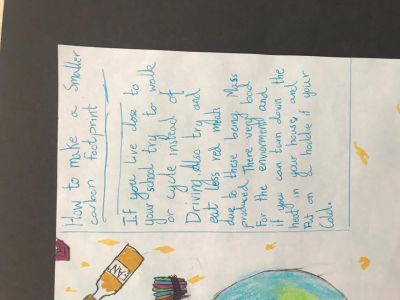 How to make a Smaller
carbon footprint
If you live close to
your school try to walk
or cycle instead of
Driving. Also try and
eat less red meat
due to these being Mass
produced. There very bad
For the enviorment and
if you can turn down the
heat in your house and
Put on a hoddie if your
Cold.